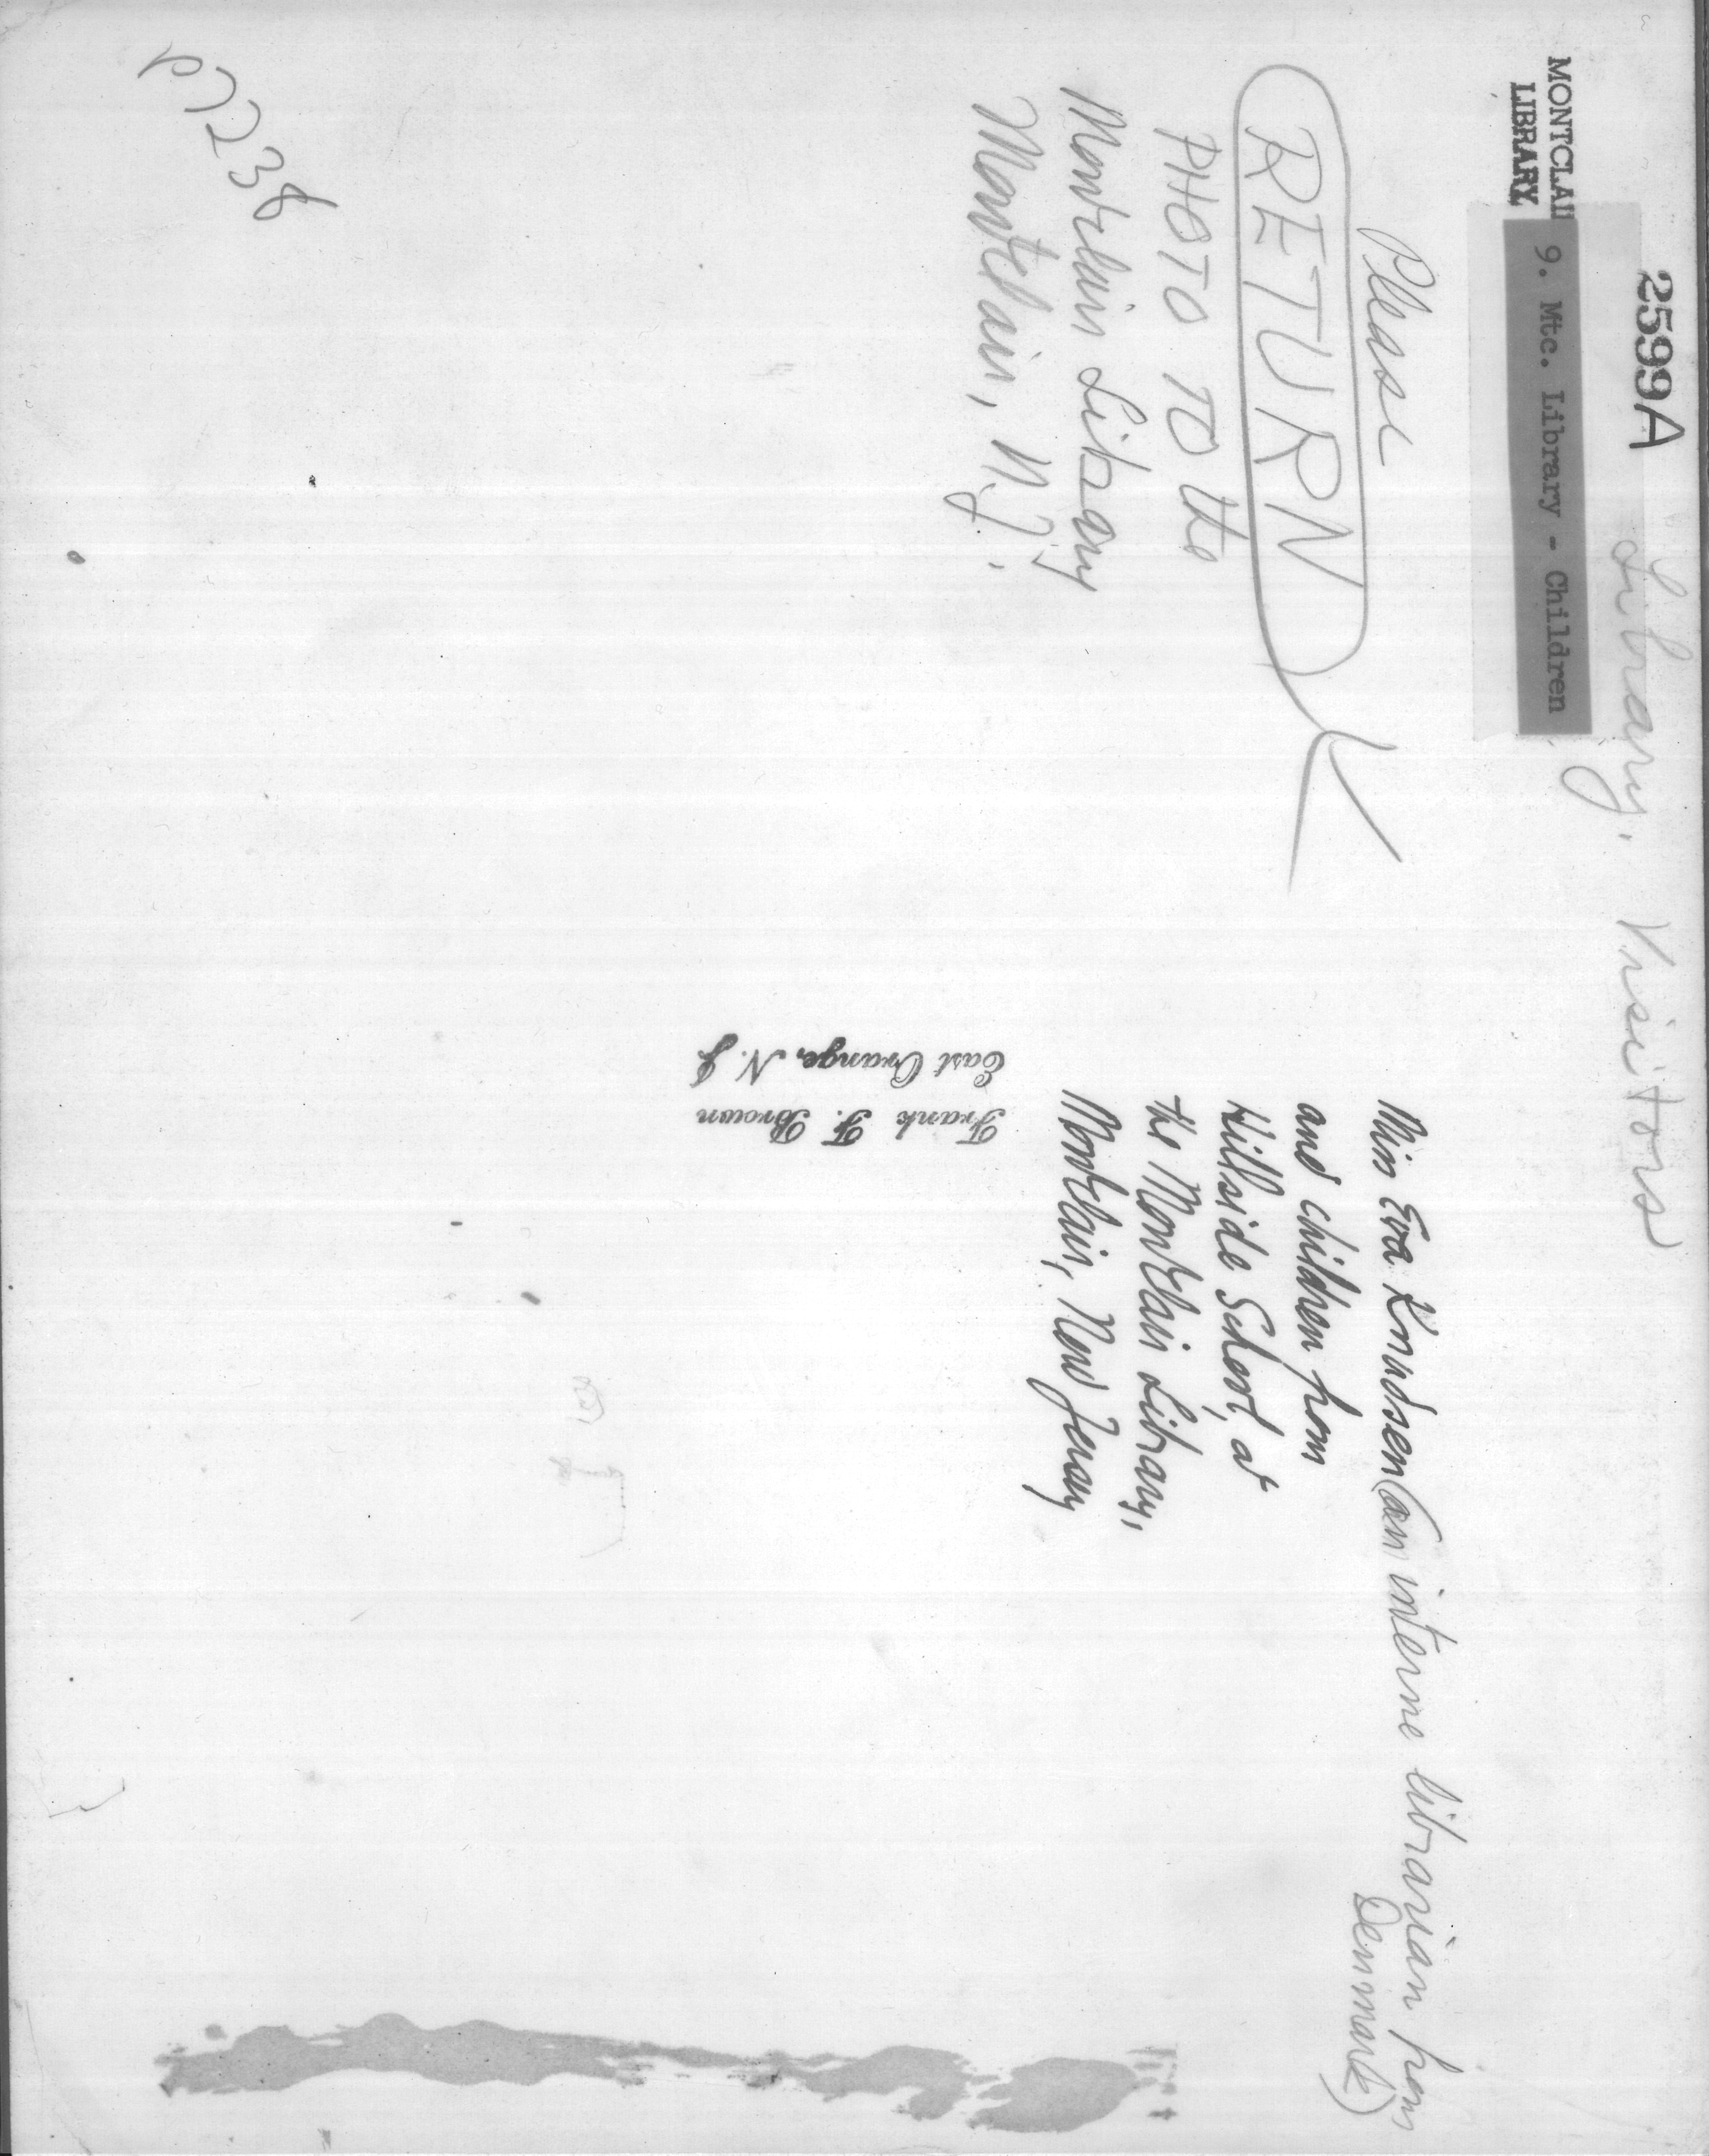 2599A
Library. Visitors
MONTCLAI
LIBRARY
9. Mtc. Library - Children
Please
RETURN
PHOTO TO the
Montclair Library
Montclair, N.J.
Miss Eva Knudsen (an interne librarian from
Denmark)
and children from
Hillside School, at
the Montclair Library,
Montclair, New Jersey
Frank F. Brown
East Orange, N. J.